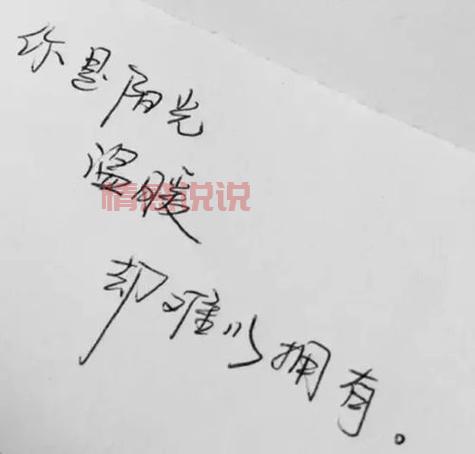 你是阳光
温暖
情感说说
却难以拥有。